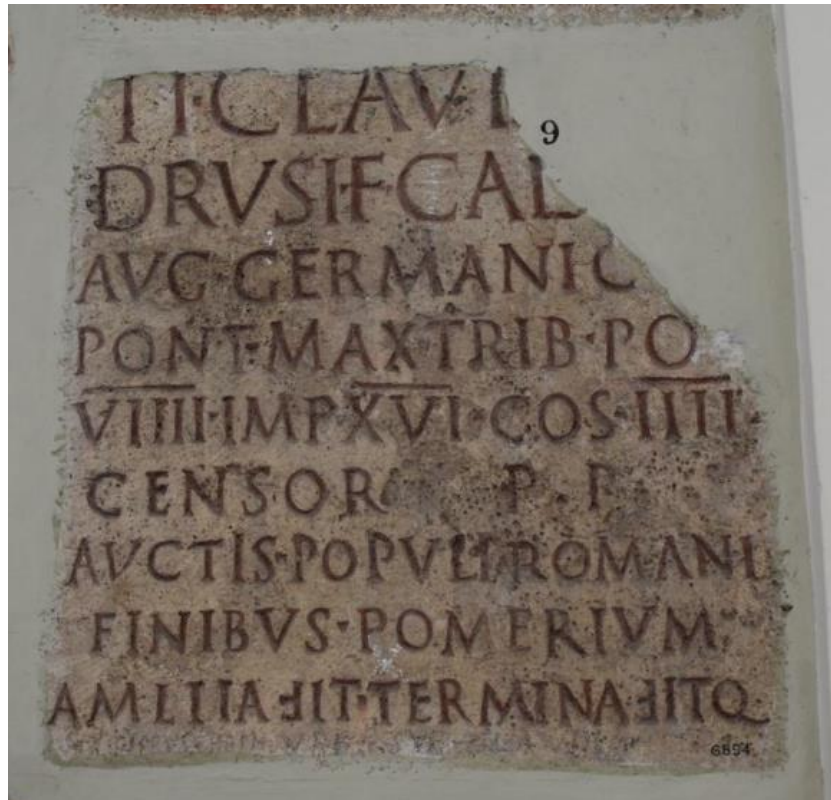 TI·CLAVD
9
DRVSI·F·CAI
AVG·GERMANIC
PONT·MAX·TRIB·PO
VIIII·IMP·XVI·COS·IIII
CENSOR P·P
AVCTIS·POPVLI·ROMANI
FINIBVS·POMERIVM
AMPLIAℲIT·TERMINAℲITQ
6894